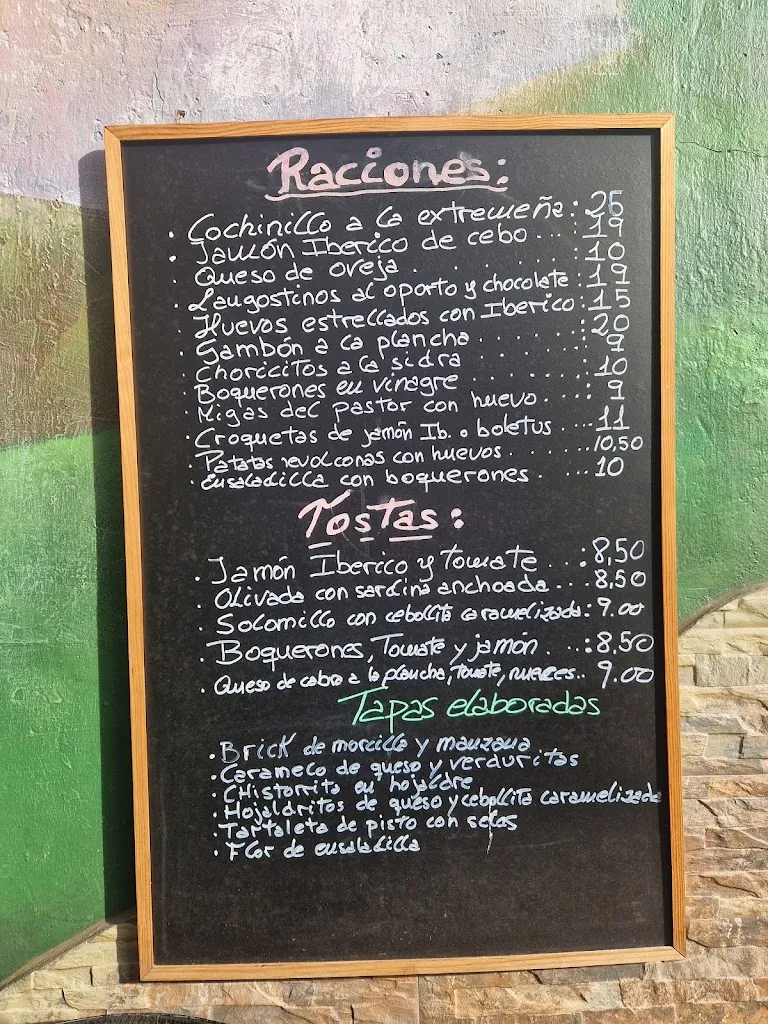 Raciones:
. Cochinillo a la extremeña: 25
. Jamón Iberico de cebo ... : 19
. Queso de oveja . . . . . . . : 10
. Langostinos al oporto y chocolate : 19
. Huevos estrellados con Iberico : 15
. Gambón a la plancha . . . . . : 20
. Choricitos a la sidra . . . . . : 9
. Boquerones en vinagre . . . . : 10
. Migas del pastor con huevo . . . : 9
. Croquetas de jamón Ib. o boletus ... 11
. Patatas revolconas con huevos . . . . . . 10,50
. Ensaladilla con boquerones . . . . 10
Tostas:
. Jamón Iberico y tomate ...: 8,50
. Olivada con sardina anchoada ...: 8,50
. Solomillo con cebollita caramelizada: 9.00
. Boquerones, Tomate y jamón ...: 8.50
. Queso de cabra a la plancha, tomate, nueces.. 9.00
Tapas elaboradas
. Brick de morcilla y manzana
. Caramelo de queso y verduritas
. CHistorrita en hojaldre
. Hojaldritos de queso y cebollita caramelizada
. Tartaleta de pisto con setas
. Flor de ensaladilla